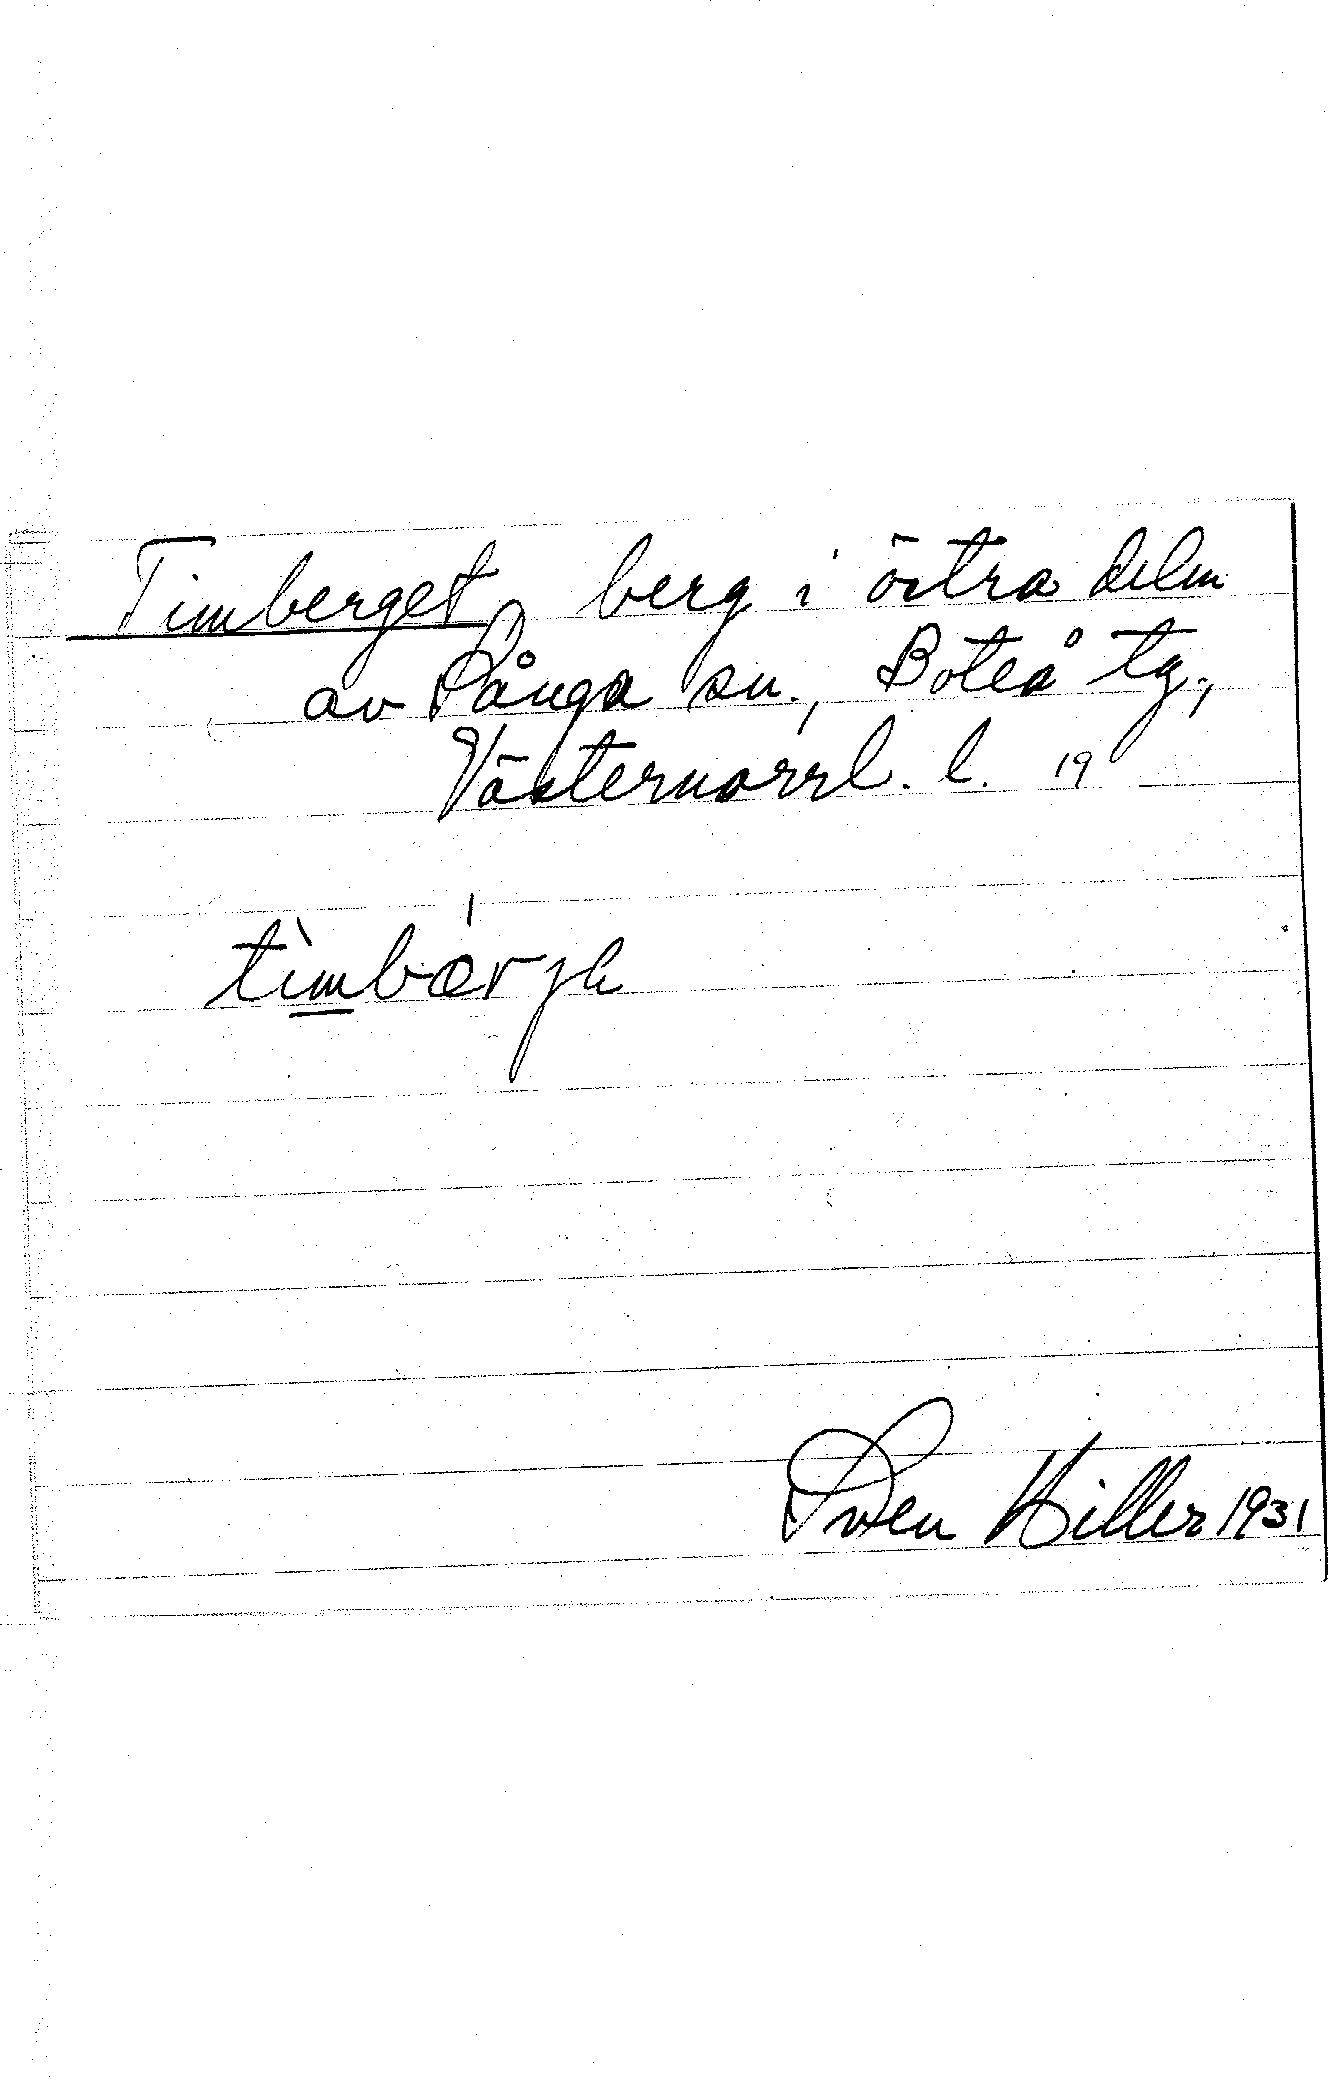 Timberget berg i östra delen
av Sånga sn., Boteå tg.,
Västernorrl. l. 19
tìmbærje
Sven Hiller 1931